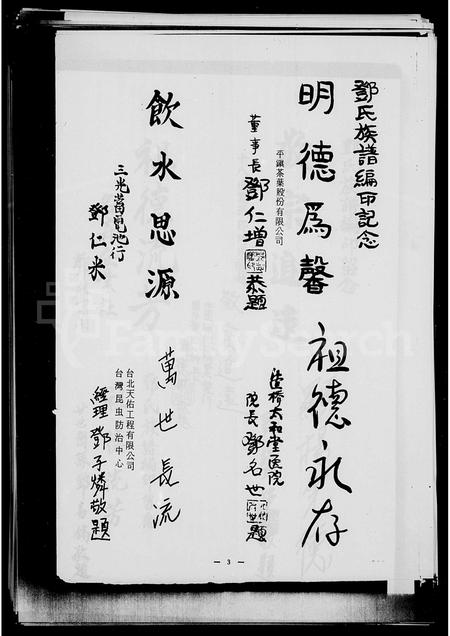 鄧氏族譜編印記念
明德爲馨
平鎮茶葉股份有限公司
董事長 鄧仁增 恭題
飲水思源
三光蓄電池行
鄧仁米
祖德永存
太和堂医院
院長 鄧名世 題
萬世長流
台北天佑工程有限公司
台灣昆虫防治中心
經理 鄧子燐敬題
— 3 —
FamilySearch